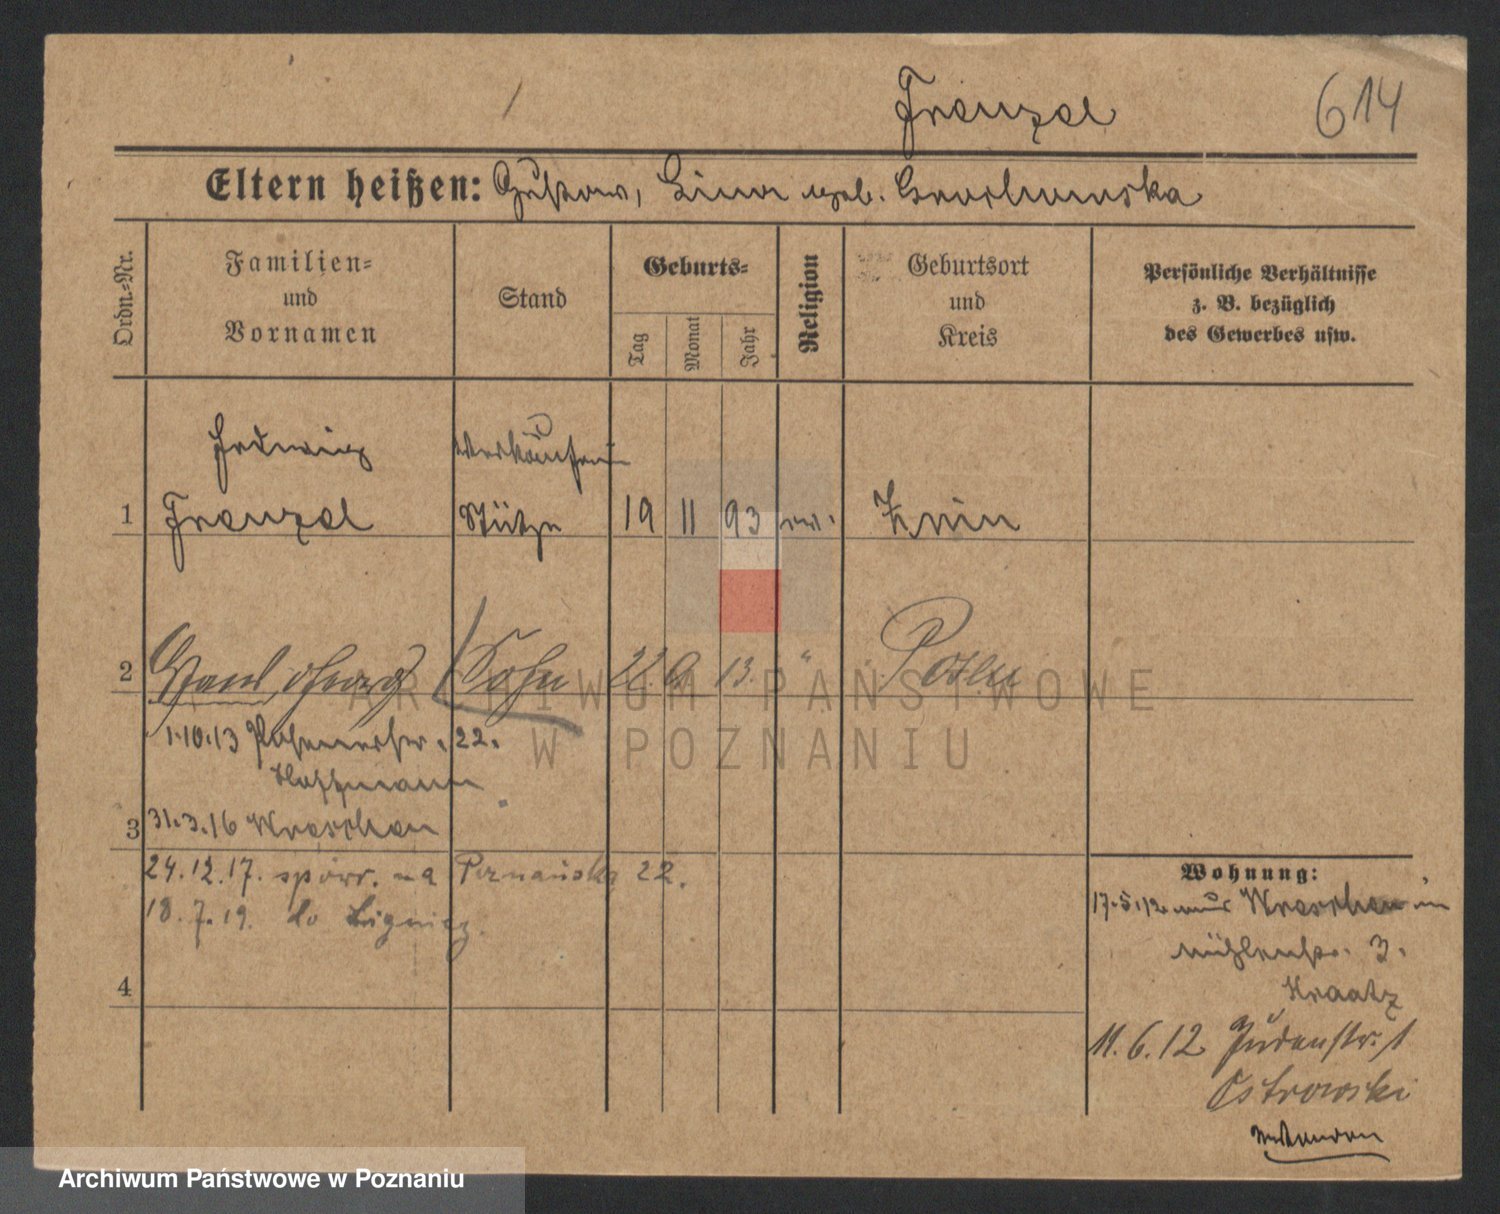 Frenzel 614
Eltern heißen: Gustav, Lina geb. Grochowska
Ordn.-Nr.
Familien-
und
Vornamen
Stand
Geburts-
Tag
Monat
Jahr
Religion
Geburtsort
und
Kreis
Persönliche Verhältnisse
z. B. bezüglich
des Gewerbes usw.
Hedwig Verkäuferin
1 Frenzel Stütze 19 11 93 ev. Znin
2 Georg Sohn 22. 9. 13. " Posen
1.10.13 22.
Hoffmann
3 31.3.16 Wreschen
24.12.17. na Poznańska 22.
18.7.19. do Lignicy
4
Wohnung:
17.5.12 aus Wreschen in
Mühlenstr. 3.
Kraatz
11.6.12 Judenstr. 1
Ostrowski
ARCHIWUM PAŃSTWOWE
W POZNANIU
Archiwum Państwowe w Poznaniu